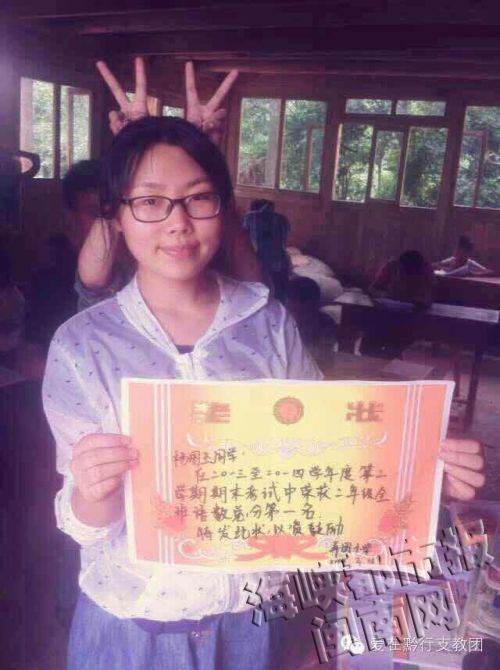 奖 状
杨周玉同学:
在二〇一三至二〇一四学年度第二
学期期末考试中荣获二年级全
班语数总分第一名
特发此状,以资鼓励
海峡都市报
闽南网
爱在黔行支教团